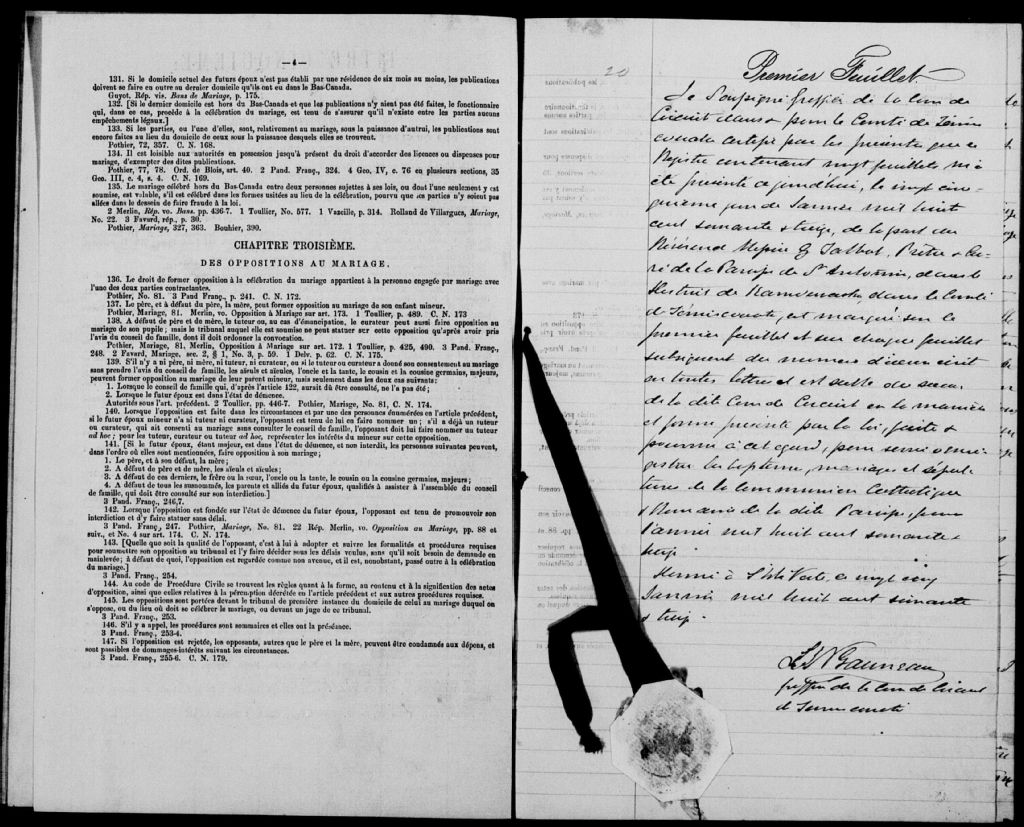 — 4 —
131. Si le domicile actuel des futurs époux n'est pas établi par une résidence de six mois au moins, les publications
doivent se faire en outre au dernier domicile qu'ils ont eu dans le Bas-Canada.
Guyot. Rép. vis. Bans de Mariage, p. 175.
132. [Si le dernier domicile est hors du Bas-Canada et que les publications n'y aient pas été faites, le fonctionnaire
qui, dans ce cas, procède à la célébration du mariage, est tenu de s'assurer qu'il n'existe entre les parties aucuns
empêchements légaux.]
133. Si les parties, ou l'une d'elles, sont, relativement au mariage, sous la puissance d'autrui, les publications sont
encore faites au lieu du domicile de ceux sous la puissance desquels elles se trouvent.
Pothier, 72, 357. C. N. 168.
134. Il est loisible aux autorités en possession jusqu'à présent du droit d'accorder des licences ou dispenses pour
mariage, d'exempter des dites publications.
Pothier, 77, 78. Ord. de Blois, art. 40. 2 Pand. Franç., 324. 4 Geo. IV, c. 76 en plusieurs sections, 35
Geo. III, c. 4, s. 4. C. N. 169.
135. Le mariage célébré hors du Bas-Canada entre deux personnes sujettes à ses lois, ou dont l'une seulement y est
soumise, est valable, s'il est célébré dans les formes usitées au lieu de la célébration, pourvu que les parties n'y soient pas
allées dans le dessein de faire fraude à la loi.
2 Merlin, Rép. vo. Bans. pp. 436-7. 1 Toullier, No. 577. 1 Vazeille, p. 314. Rolland de Villargues, Mariage,
No. 22. 3 Favard, rép., p. 30.
Pothier, Mariage, 327, 363. Bouhier, 390.
CHAPITRE TROISIÈME.
DES OPPOSITIONS AU MARIAGE.
136. Le droit de former opposition à la célébration du mariage appartient à la personne engagée par mariage avec
l'une des deux parties contractantes.
Pothier, No. 81. 3 Pand Franç., p. 241. C. N. 172.
137. Le père, et à défaut du père, la mère, peut former opposition au mariage de son enfant mineur.
Pothier, Mariage, 81. Merlin, vo. Opposition à Mariage sur art. 173. 1 Toullier, p. 489. C. N. 173
138. A défaut de père et de mère, le tuteur ou, au cas d'émancipation, le curateur peut aussi faire opposition au
mariage de son pupille; mais le tribunal auquel elle est soumise ne peut statuer sur cette opposition qu'après avoir pris
l'avis du conseil de famille, dont il doit ordonner la convocation.
Pothier, Mariage, 81, Merlin, Opposition à Mariage sur art. 172. 1 Toullier, p. 425, 490. 3 Pand. Franç.,
248. 2 Favard, Mariage, sec. 2, § 1, No. 3, p. 59. 1 Delv. p. 62. C. N. 175.
139. S'il n'y a ni père, ni mère, ni tuteur, ni curateur, ou si le tuteur ou curateur a donné son consentement au mariage
sans prendre l'avis du conseil de famille, les aïeuls et aïeules, l'oncle et la tante, le cousin et la cousine germains, majeurs,
peuvent former opposition au mariage de leur parent mineur, mais seulement dans les deux cas suivants:
1. Lorsque le conseil de famille qui, d'après l'article 122, aurait dû être consulté, ne l'a pas été;
2. Lorsque le futur époux est dans l'état de démence.
Autorités sous l'art. précédent. 2 Toullier. pp. 446-7. Pothier, Mariage, No. 81, C. N. 174.
140. Lorsque l'opposition est faite dans les circonstances et par une des personnes énumérées en l'article précédent,
si le futur époux mineur n'a ni tuteur ni curateur, l'opposant est tenu de lui en faire nommer un; s'il a déjà un tuteur
ou curateur, qui ait consenti au mariage sans consulter le conseil de famille, l'opposant doit lui faire nommer un tuteur
ad hoc; pour les tuteur, curateur ou tuteur ad hoc, représenter les intérêts du mineur sur cette opposition.
141. [Si le futur époux, étant majeur, est dans l'état de démence, et non interdit, les personnes suivantes peuvent,
dans l'ordre où elles sont mentionnées, faire opposition à son mariage;
1. Le père, et à son défaut, la mère;
2. A défaut de père et de mère, les aïeuls et aïeules;
3. A défaut de ces derniers, le frère ou la sœur, l'oncle ou la tante, le cousin ou la cousine germains, majeurs;
4. A défaut de tous les susnommés, les parents et alliés du futur époux, qualifiés à assister à l'assemblée du conseil
de famille, qui doit être consulté sur son interdiction.]
3 Pand. Franç., 246,7.
142. Lorsque l'opposition est fondée sur l'état de démence du futur époux, l'opposant est tenu de promouvoir son
interdiction et d'y faire statuer sans délai.
3 Pand. Franç., 247. Pothier, Mariage, No. 81. 22 Rép. Merlin, vo. Opposition au Mariage, pp. 88 et
suiv., et No. 4 sur art. 174. C. N. 174.
143. [Quelle que soit la qualité de l'opposant, c'est à lui à adopter et suivre les formalités et procédures requises
pour soumettre son opposition au tribunal et l'y faire décider sous les délais voulus, sans qu'il soit besoin de demande en
mainlevée; à défaut de quoi, l'opposition est regardée comme non avenue, et il est, nonobstant, passé outre à la célébration
du mariage.]
3 Pand. Franç., 254.
144. Au code de Procédure Civile se trouvent les règles quant à la forme, au contenu et à la signification des actes
d'opposition, ainsi que celles relatives à la péremption décrétée en l'article précédent et aux autres procédures requises.
145. Les oppositions sont portées devant le tribunal de première instance du domicile de celui au mariage duquel on
s'oppose, ou du lieu où doit se célébrer le mariage, ou devant un juge de ce tribunal.
3 Pand. Franç., 253.
146. S'il y a appel, les procédures sont sommaires et elles ont la préséance.
3 Pand. Franç., 253-4.
147. Si l'opposition est rejetée, les opposants, autres que le père et la mère, peuvent être condamnés aux dépens, et
sont passibles de dommages-intérêts suivant les circonstances.
3 Pand. Franç., 255-6. C. N. 179.
20
Premier Feuillet
Le Soussigné greffier de la Cour de
Circuit dans & pour le Comté de Témis
couata certifie par les présentes que ce
Registre contenant vingt feuillets m'a
été présenté ce jourdhui, le vingt cin-
quième jour de Janvier mil huit
cent soixante & treize, de la part du
Révérend Messire G Talbot, Prêtre & Cu-
ré de la Paroisse de St Antonin, dans le
District de Kamouraska, dans le Comté
de Témiscouata, est marqué sur le
premier feuillet et sur chaque feuillet
subséquent du numéro d'icelui écrit
en toutes lettres et est scellé du sceau
de la dite Cour de Circuit en la manière
et forme prescrite par la loi, faite &
pourvue à cet égard, pour servir à enré-
gistrer les baptêmes, mariages et sépul-
tures de la Communion Catholique
& Romaine de la dite Paroisse, pour
l'année mil huit cent soixante &
treize.
Donné à L'Isle Verte, ce vingt cinq
Janvier mil huit cent soixante
& treize.
greffier de la Cour de Circuit
de Témiscouata